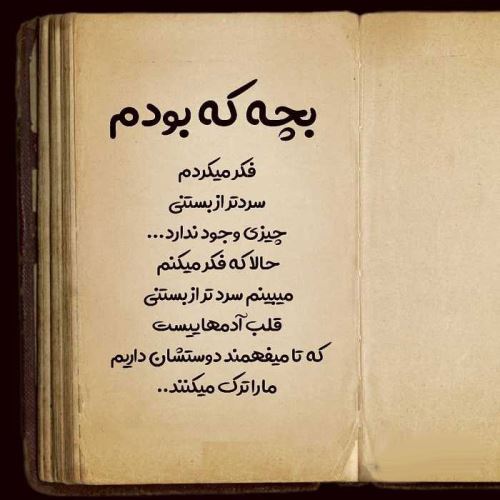 بچه که بودم
فکر میکردم
سردتر از بستنی
چیزی وجود ندارد...
حالا که فکر میکنم
میبینم سرد تر از بستنی
قلب آدمهاییست
که تا میفهمند دوستشان داریم
ما را ترک میکنند..